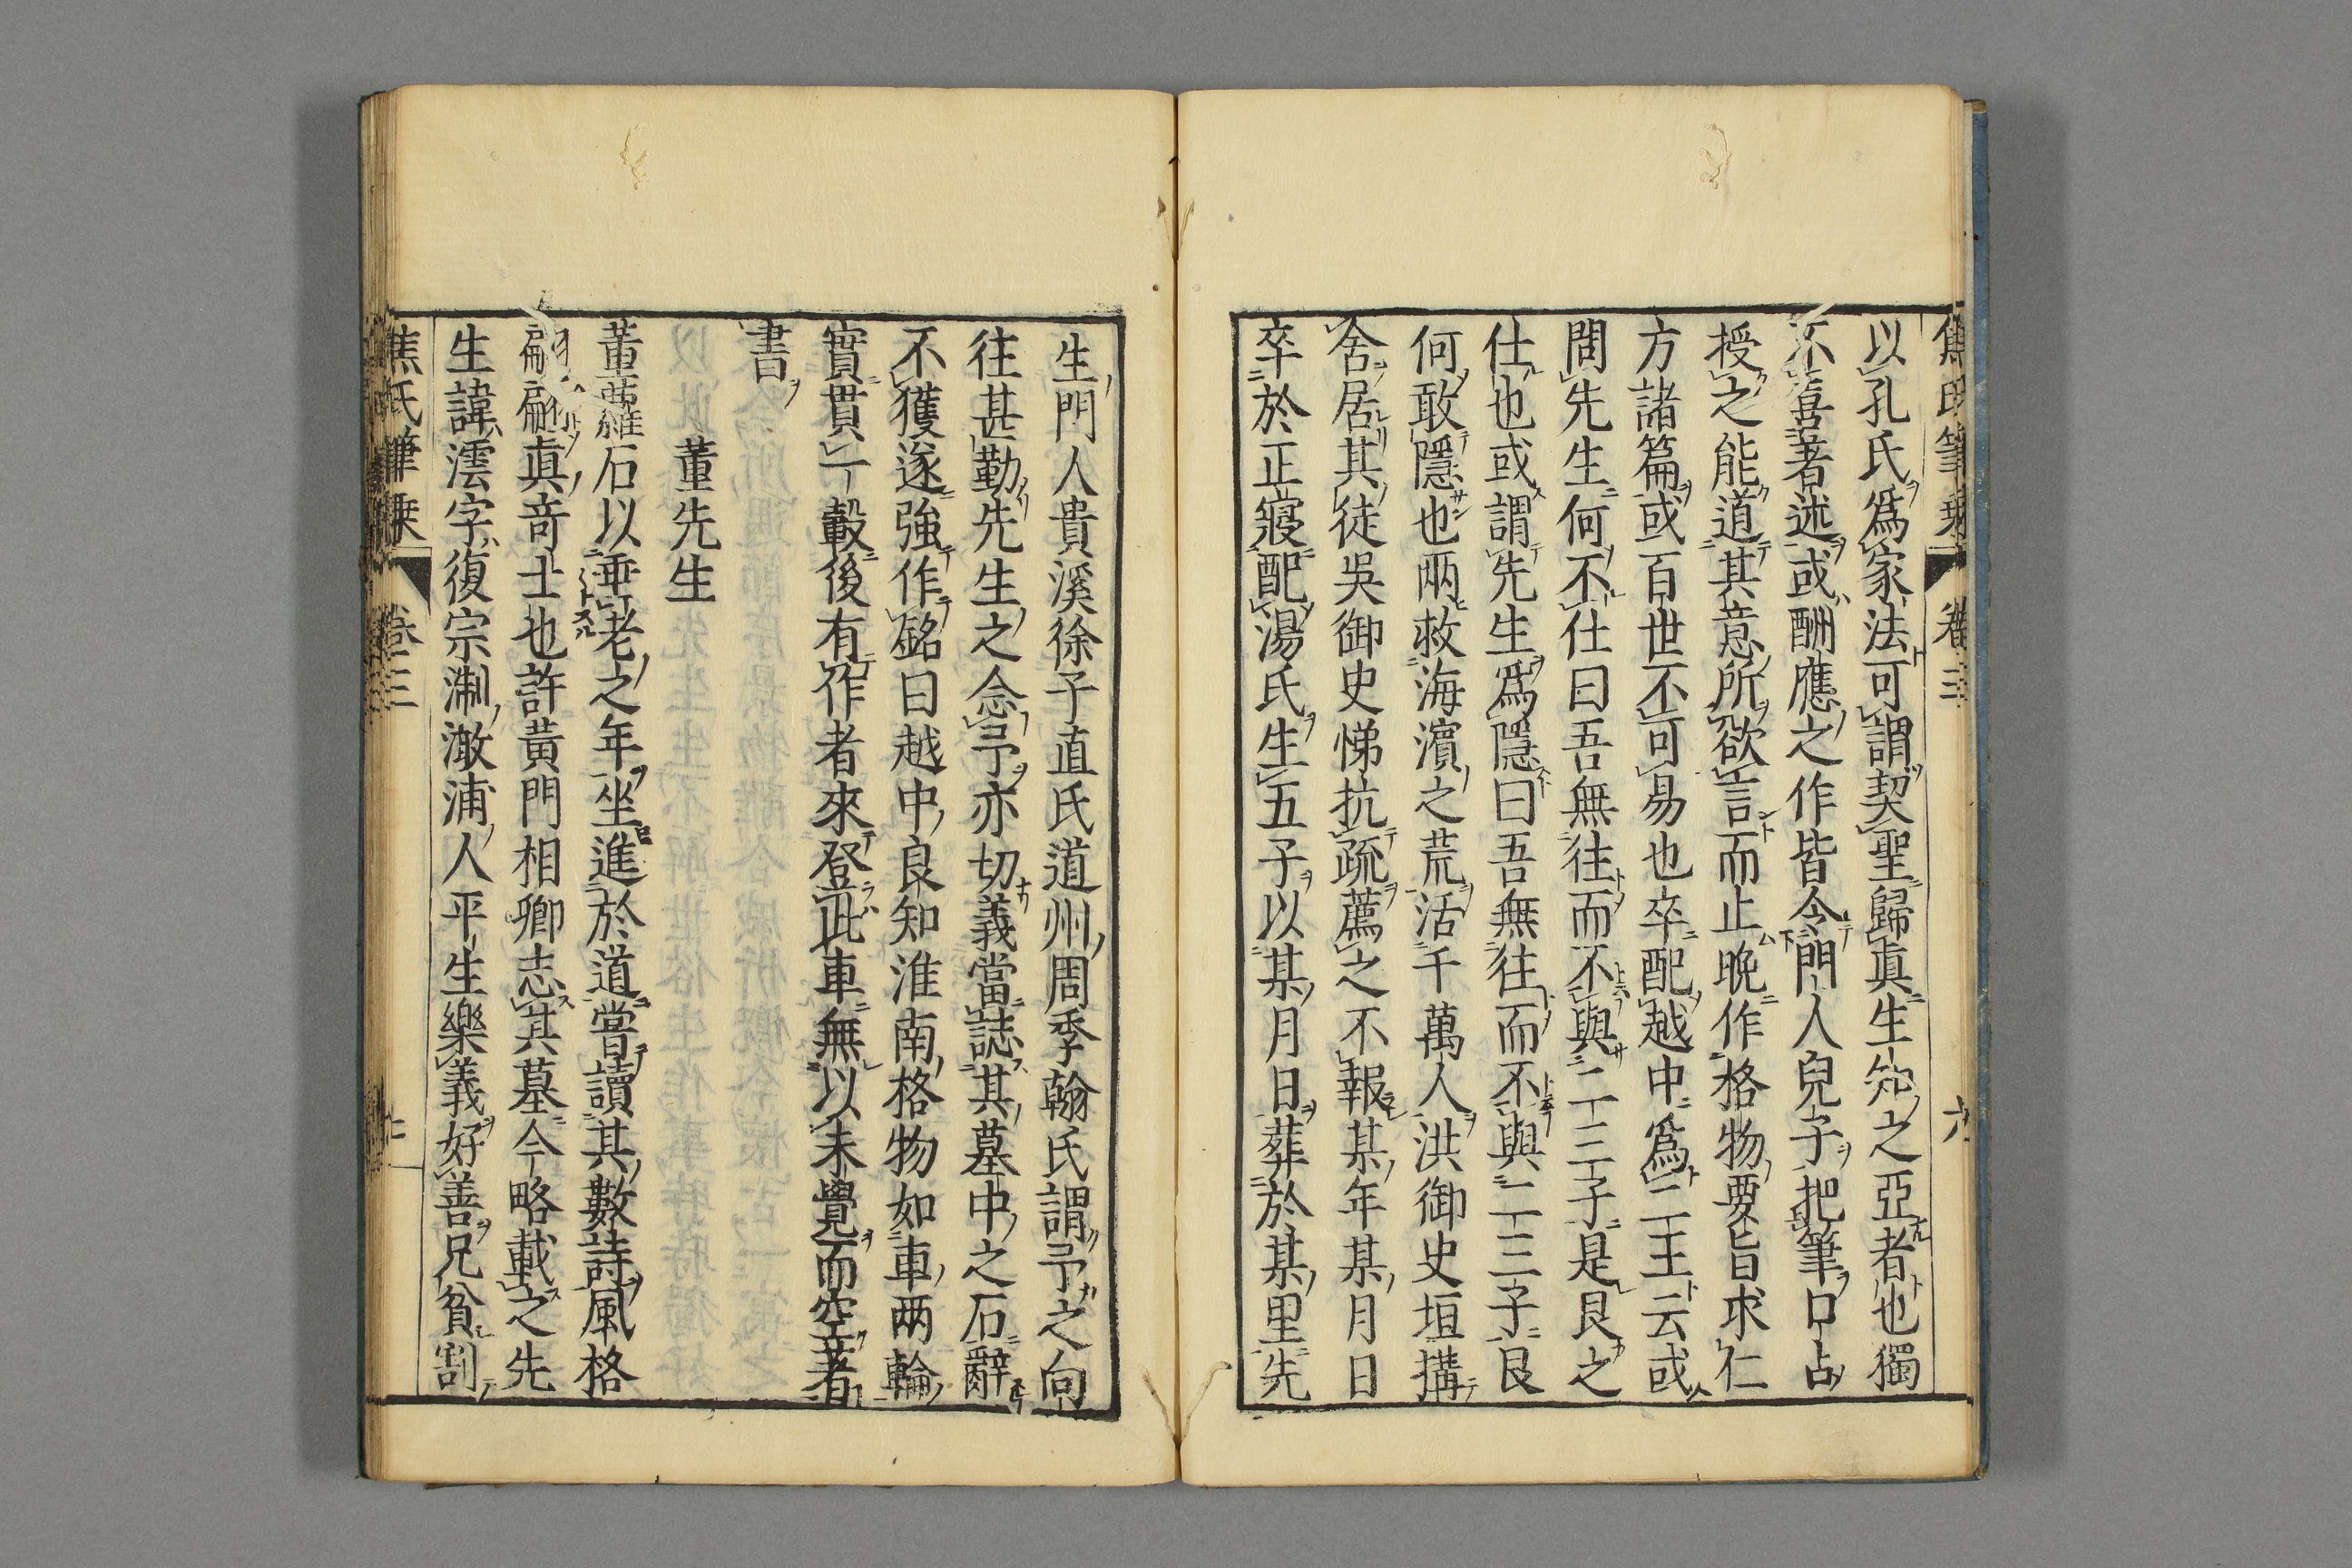 焦氏筆乗 卷三 六
以孔氏爲家法可謂契聖歸眞生知之亞者也獨
不喜著述或酬應之作皆令門人兒子把筆口占
授之能道其意所欲言而止晩作格物要旨求仁
方諸篇或百世不可易也卒配越中爲二王云或
問先生何不仕曰吾無往而不與二三子是艮之
仕也或謂先生爲隱曰吾無往而不與二三子艮
何敢隱也兩救海濵之荒活千萬人洪御史垣搆
舍居其徒吳御史悌抗疏薦之不報某年某月日
卒於正寢配湯氏生五子以某月日葬於某里先
生門人貴溪徐子直氏道州周季翰氏謂予之向
往甚勤先生之念予亦切義當誌其墓中之石辭
不獲遂強作銘曰越中良知淮南格物如車兩輪
實貫一轂後有作者來登此車無以未覺而空著
書
董先生
董蘿石以垂老之年坐進於道嘗讀其數詩風格
翩翩眞竒士也許黃門相卿志其墓今略載之先
生諱澐字復宗淛澉浦人平生樂義好善兄貧割
焦氏筆乗 卷三